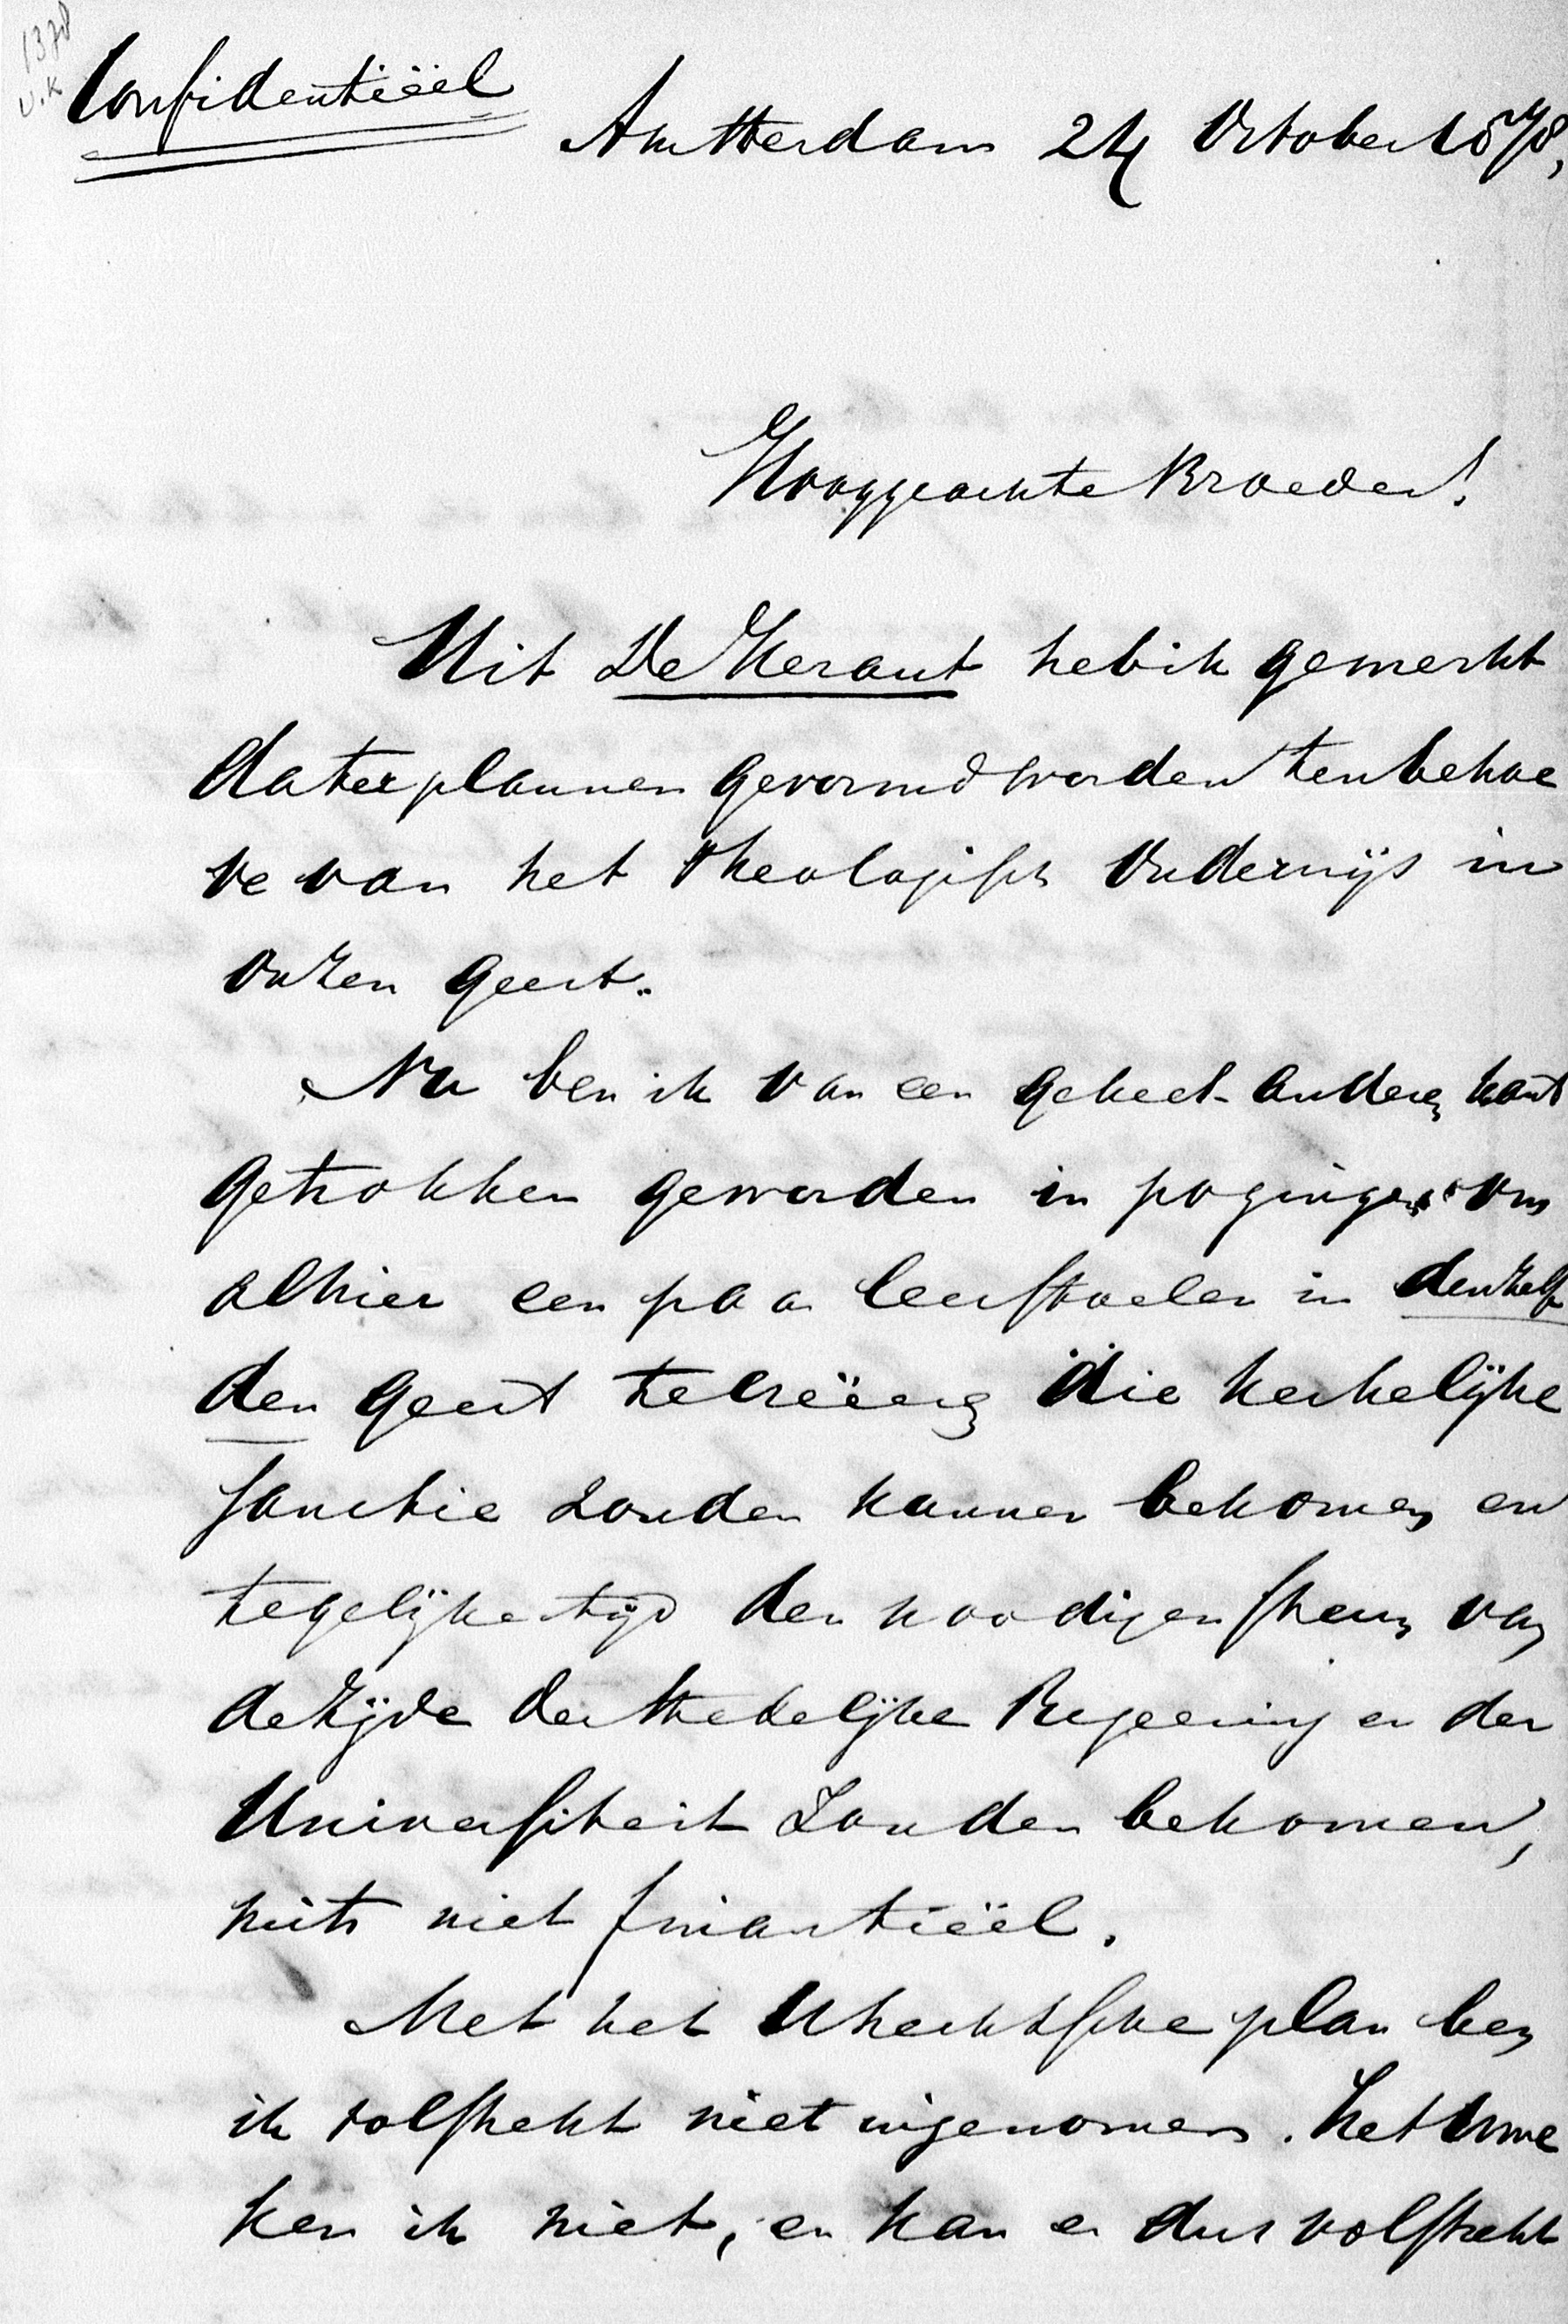 1378
v.K
Confidentiëel
Amsterdam 24 October 1878,
Hooggeachte Broeder!
Uit De Heraut heb ik gemerkt
dat er plannen gevormd worden ten behoe
ve van het theologisch Onderwijs in
onzen geest.
Nu ben ik van een geheel anderen kant
getrokken geworden in pogingen om
alhier een paar leerstoelen in denzelf
den geest te creëeren die kerkelijke
sanctie zouden kunnen bekomen en
tegelijkertijd den noodigen steun van
de zijde der Stedelijke Regeering en der
Universiteit zouden bekomen,
mits niet finantiëel.
Met het Utrechtsche plan ben
ik volstrekt niet ingenomen. Het Uwe
ken ik niet, en kan er dus volstrekt